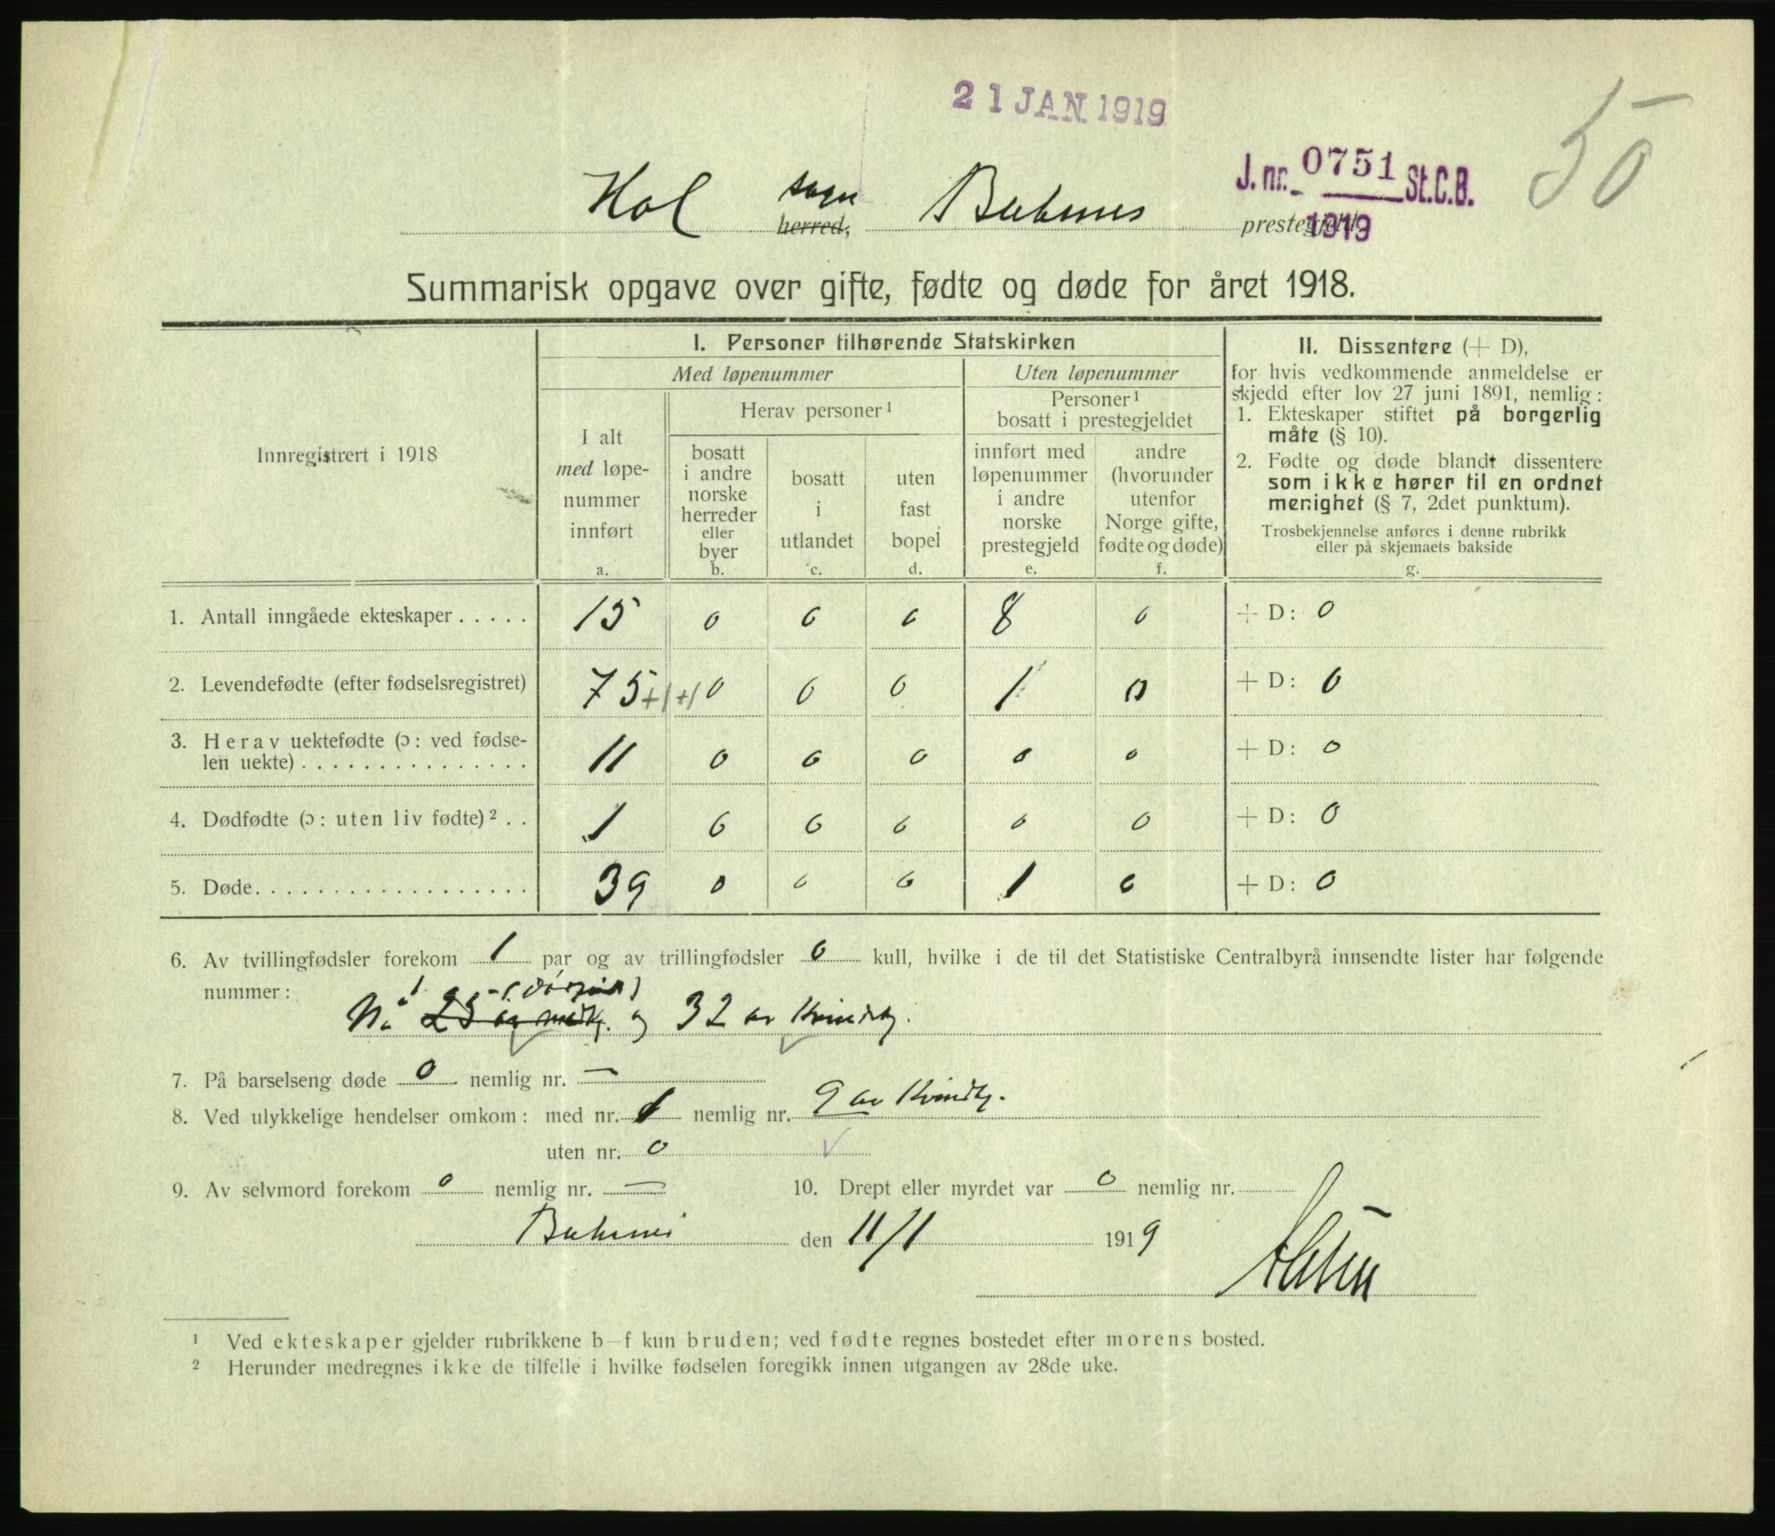 21 JAN 1919
50
J. nr. 0751 St.C.B.
1919
Hol sogn herred, Buksnes prestegjeld.
Summarisk opgave over gifte, fødte og døde for året 1918.
Innregistrert i 1918
I. Personer tilhørende Statskirken
Med løpenummer
Uten løpenummer
I alt
med løpe-
nummer
innført
a.
Herav personer ¹
bosatt
i andre
norske
herreder
eller
byer
b.
bosatt
i
utlandet
c.
uten
fast
bopel
d.
Personer ¹
bosatt i prestegjeldet
innført med
løpenummer
i andre
norske
prestegjeld
e.
andre
(hvorunder
utenfor
Norge gifte,
fødte og døde)
f.
II. Dissentere (+ D),
for hvis vedkommende anmeldelse er
skjedd efter lov 27 juni 1891, nemlig:
1. Ekteskaper stiftet på borgerlig
måte (§ 10).
2. Fødte og døde blandt dissentere
som ikke hører til en ordnet
menighet (§ 7, 2det punktum).
Trosbekjennelse anføres i denne rubrikk
eller på skjemaets bakside
g.
1. Antall inngåede ekteskaper . . . . . 15 0 0 0 8 0 + D: 0
2. Levendefødte (efter fødselsregistret) 75 +1 +1 0 0 0 1 0 + D: 0
3. Herav uektefødte (ɔ: ved fødse-
len uekte) . . . . . . . . . . . . . . . 11 0 0 0 0 0 + D: 0
4. Dødfødte (ɔ: uten liv fødte) ² . . 1 0 0 0 0 0 + D: 0
5. Døde. . . . . . . . . . . . . . . . . . . 39 0 0 0 1 0 + D: 0
6. Av tvillingfødsler forekom 1 par og av trillingfødsler 0 kull, hvilke i de til det Statistiske Centralbyrå innsendte lister har følgende
nummer:
No 23 og og 32 av Kvindekj.
7. På barselseng døde 0 nemlig nr. —
8. Ved ulykkelige hendelser omkom: med nr. 1 nemlig nr. 9 av Kvindekj.
uten nr. 0
9. Av selvmord forekom 0 nemlig nr. — 10. Drept eller myrdet var 0 nemlig nr.
Buksnes den 11/1 1919
¹ Ved ekteskaper gjelder rubrikkene b—f kun bruden; ved fødte regnes bostedet efter morens bosted.
² Herunder medregnes ikke de tilfelle i hvilke fødselen foregikk innen utgangen av 28de uke.